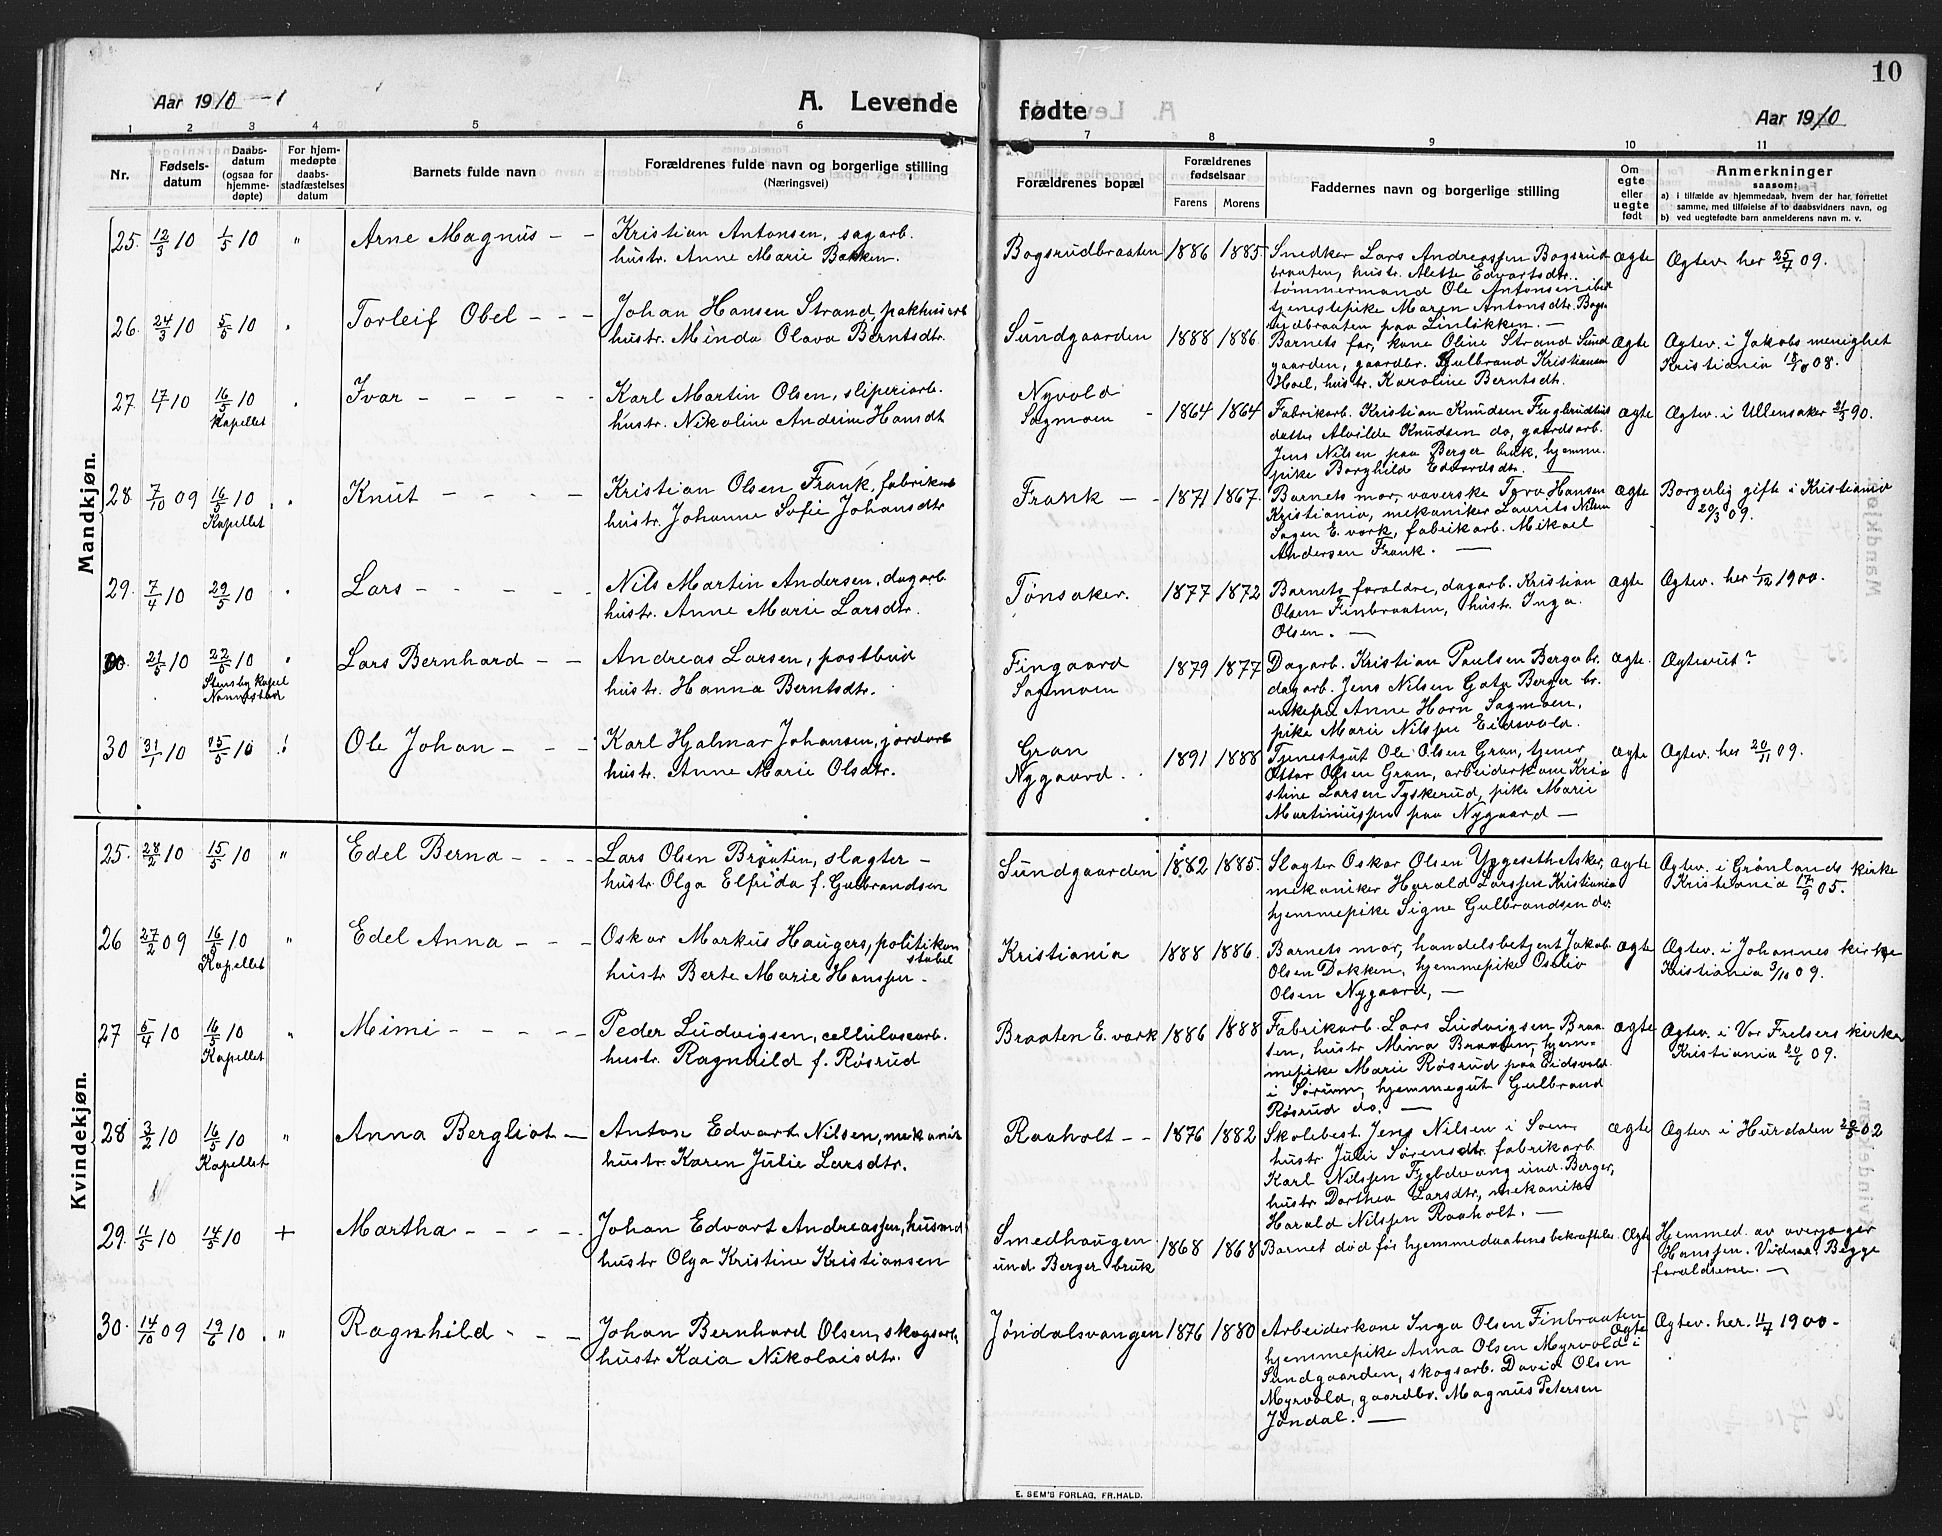 10
Aar 1910
A. Levende fødte
Aar 1910
1 2 3 4 5 6 7 8 9 10 11
Nr.
Fødsels-
datum
Daabs-
datum
(ogsaa for
hjemme-
døpte)
For hjem-
medøpte
daabs-
stadfæstelses
datum
Barnets fulde navn
Forældrenes fulde navn og borgerlige stilling
(Næringsvei)
Forældrenes bopæl
Forældrenes
fødselsaar
Farens Morens
Faddernes navn og borgerlige stilling
Om
egte
eller
uegte
født
Anmerkninger
saasom:
a) i tilfælde av hjemmedaab, hvem der har forrettet
samme, med tilføielse af to daabsvidners navn, og
b) ved uegtefødte barn anmelderens navn m. v.
Mandkjøn.
25. 12/3 10 1/5 10 " Arne Magnus - -
Kristian Antonsen, sagarb.
hustr. Anne Marie Bakken.
Bogsrudbraaten 1886 1885.
Snedker Lars Andreassen Bogsrud
braaten, hustr. Alette Edvartsdtr.
tømmermand Ole Antonsen ibid
tjenestepike Maren Antonsdtr. Bogs
rudbraaten paa Linløkken. —
ægte
Ægtev. her 25/4 09.
26. 24/3 10 5/5 10 Torleif Obel - - -
Johan Hansen Strand, pakhusarb
hustr. Minda Olava Berntsdtr.
Sundgaarden 1888 1886.
Barnets far, kone Oline Strand Sund
gaarden, gaardbr. Gulbrand Kristiansen
Hoel, hustr. Karoline Berntsdt.
ægte
Ægtev. i Jakobs menighet
Kristiania 08.
27. 17/ 10 16/5 10 Kapellet Ivar - - - - -
Karl Martin Olsen, sliperiarb.
hustr. Nikoline Andrine Hansdt
Nyvold
Sagmoen - 1864 1864
Fabrikarb. Kristian Knudsen
datter Alvilde Knudsen do, gaardsarb.
Jens Nilsen paa Berger bruk, hjemme
pike Borghilde Edvardsdtr. —
ægte
Ægtev. i Ullensaker 90.
28 7/10 09 16/5 10 Kapellet Knut - - - -
Kristian Olsen Frank, fabrikarb
hustr. Johanne Sofie Johansdtr
Frank - - 1871 1867.
Barnets mor, væverske Tora Hansen
Kristiania, mekaniker Laurits Nilsen
Sagen E. værk, fabrikarb. Mikael
Andersen Frank. —
ægte
Borgerlig gifte i Kristiania
20/3 09.
29. 7/4 10 29/5 10 Lars - - - - -
Nils Martin Andersen, dagarb
hustr. Anne Marie Larsdtr.
Tønsaker. 1877 1872
Barnets forældre, dagarb. Kristian
Olsen Finbraaten, hustr. Inga
Olsen. —
ægte
Ægtev. her 1/12 1900.
30. 21/5 10 22/5 10 Stensby kapel Nannestad Lars Bernhard - -
Andreas Larsen, postbud
hustr. Hanna Berntsdtr.
Fingaard
Sagmoen 1879 1877
Dagarb. Kristian Paulsen Berger br.
dagarb. Jens Nilsen Gata Berger br.
enkefru Anne Horn Sagmoen,
pike Marie Nilssen Eidsvold.
ægte.
Ægteviet?
30 31/1 10 15/5 10 Ole Johan - - -
Karl Hjalmar Johansen, jordarb
hustr. Anne Marie Olsdtr.
Gran
Nygaard. 1891 1888
Tjenestgut Ole Olsen Gran, tjener
Ottar Olsen Gran, arbeiderkone Kri-
stine Larsen Tyskerud, pike Marie
Martiniussen paa Nygaard —
ægte
Ægtev. her 20/11 09.
Kvindekjøn.
25. 28/2 10 15/5 10 " Edel Berna - - - -
Lars Olsen Braaten, slagter -
hustr. Olga Elfrida f. Gulbrandsen
Sundgaarden 1882 1885.
Slagter Oskar Olsen Yggeseth Asker,
mekaniker Harald Larssen Kristiania
hjemmepike Signe Gulbrandsen do.
ægte
Ægtev. i Grønlands kirke
Kristiania 17/9 05.
26 27/2 09 16/5 10 Kapellet " Edel Anna - - -
Oskar Markus Haugers, politikon
stabel
hustr Berte Marie Hanssen -
Kristiania 1888 1886.
Barnets mor, handelsbetjent Jakob
Olsen Dokken, hjemmepike Oselie
Olsen Nygaard, —
ægte
Ægtev. i Johannes kirke
Kristiania 3/10 09.
27 5/4 10 16/5 10 Kapellet " Mimi - - - - -
Peder Ludvigsen, cellulosearb.
hustr. Ragnhild f. Røsrud
Braaten E. værk 1886 1888
Fabrikarb. Lars Ludvigsen Braa
ten, hustr Mina Braaten, hjem-
mepike Marie Røsrud paa Eidsvold
i Sørum, hjemmegut Gulbrand
Røsrud do. —
ægte
Ægtev. i Vor Frelsers kirke
Kristiania 20/6 09.
28 3/2 10 16/5 10 Kapellet " Anna Bergliot -
Anton Edvart Nilsen, mekanik
hustr. Karen Julie Larsdtr.
Raaholt - - 1876 1882
Skolebest. Jens Nilsen i Soen,
hustr Julie Sørensdtr. fabrikarb.
Karl Nilssen und. Berger,
hustr Dorthea Larsdtr, mekaniker
Harald Nilssen Raaholt. —
ægte
Ægtev. i Hurdalen 02
29. 11/5 10 14/5 10 + Martha - - - -
Johan Edvart Andreassen, husmd
hustr Olga Kristine Kristiansen
Smedhaugen
und Berger bruk 1868 1868
Barnet død før hjemmedaabens bekræftelse. Ægte
Hjemmed. av overjæger
Hanssen. Vidner: Begge
forældrene. —
30. 14/10 09 19/6 10 " Ragnhild - - -
Johan Bernhard Olsen, skogsarb,
hustr Kaia Nikolaisdtr.
Jøndalsvangen 1876 1880
Arbeiderkone Inga Olsen Finbraaten
hjemmepike Anna Olsen Myrvold i
Sundgaarden, skogsarb. David Olsen
Myrvold, gaardbr. Magnus Petersen
Jøndal. —
Ægte
Ægtev. her. 11/7 1900-
E. SEM'S FORLAG, FR.HALD.